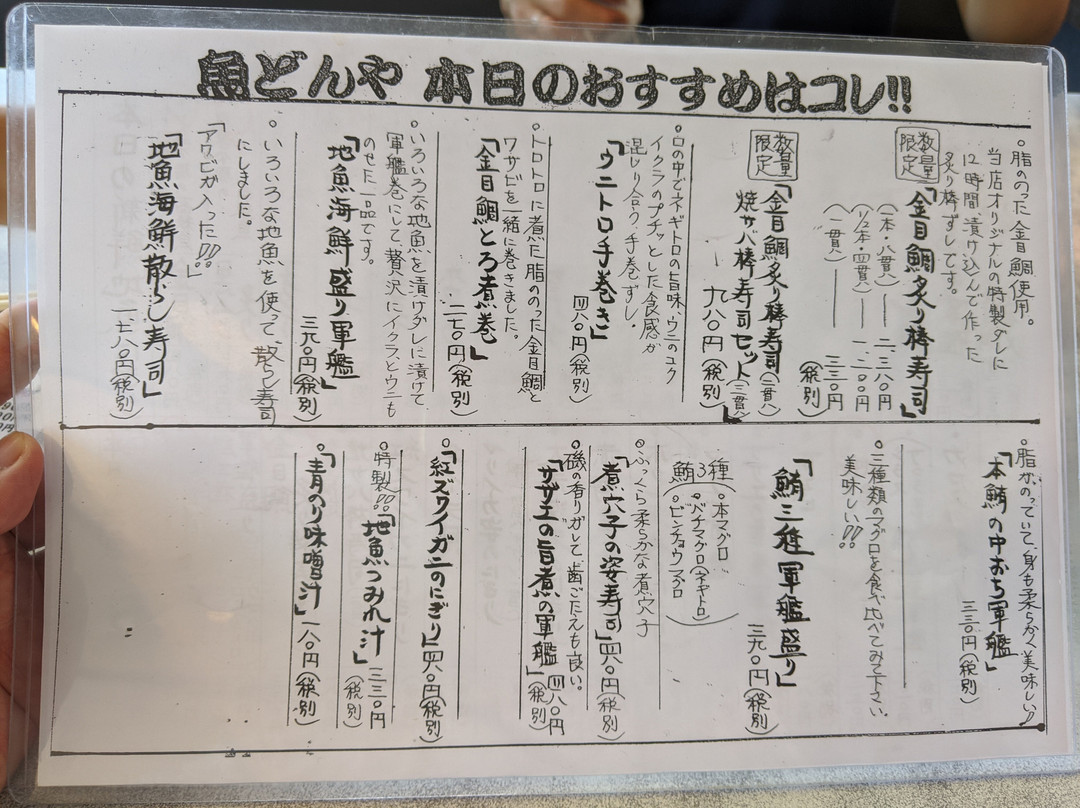 魚どんや 本日のおすすめはコレ!!
。脂ののった金目鯛使用。
当店オリジナルの特製ダレに
12時間漬け込んで作った
炙り棒ずしです。
数量限定
「金目鯛炙り棒寿司」
(一本・八貫)―二、二八〇円
(1/2本・四貫)―一、二〇〇円
(一貫)―三三〇円
(税別)
数量限定
「金目鯛炙り棒寿司(二貫)
焼サバ棒寿司セット(二貫)」
九八〇円(税別)
。口の中でネギトロの旨味・ウニのコク
イクラのプチッとした食感が
混じり合う、手巻ずし。
「ウニトロ手巻き」
四八〇円(税別)
。トロトロに煮た脂ののった金目鯛と
ワサビを一緒に巻きました。
「金目鯛とろ煮巻」
二七〇円(税別)
。いろいろな地魚を漬けダレに漬けて
軍艦巻にして、贅沢にイクラとウニも
のせた一品です。
「地魚海鮮盛り軍艦」
三九〇円(税別)
。いろいろな地魚を使って、散らし寿司
にしました。
「アワビが入った!!」
「地魚海鮮散らし寿司」
一、七八〇円(税別)
。脂がのっていて、身も柔らかく美味しい!!
「本鮪の中おち軍艦」
三三〇円(税別)
。三種類のマグロを食べ比べてみて下さい。
美味しい!!
「鮪三種軍艦盛り」
三九〇円(税別)
鮪3種
。本マグロ
。バチマグロ(ネギトロ)
。ビンチョウマグロ
。ふっくら柔らかな煮穴子
「煮穴子の姿寿司」四八〇円(税別)
。磯の香りがして歯ごたえも良い。
「サザエの旨煮の軍艦」四八〇円(税別)
。「紅ズワイガニのにぎり」四八〇円(税別)
。特製!!「地魚つみれ汁」三三〇円(税別)
。「青のり味噌汁」一八〇円(税別)